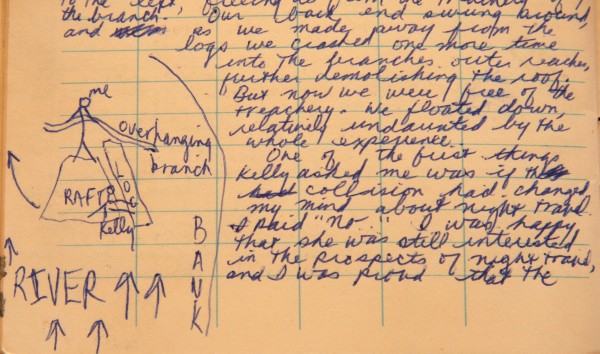 to the left, freeing us from the treachery of
the branch. Our back end swung around,
and as we made away from the
logs we crashed one more time
into the branches outer reaches,
further demolishing the roof.
But now we were free of the
treachery. We floated down,
relatively undaunted by the
whole experience.
One of the first things
Kelly asked me was if the
collision had changed
my mind about night travel.
I said "No..." I was happy
that she was still interested
in the prospects of night travel,
and I was proud that the
me
overhanging
branch
RAFT
LOG
Kelly
BANK
RIVER